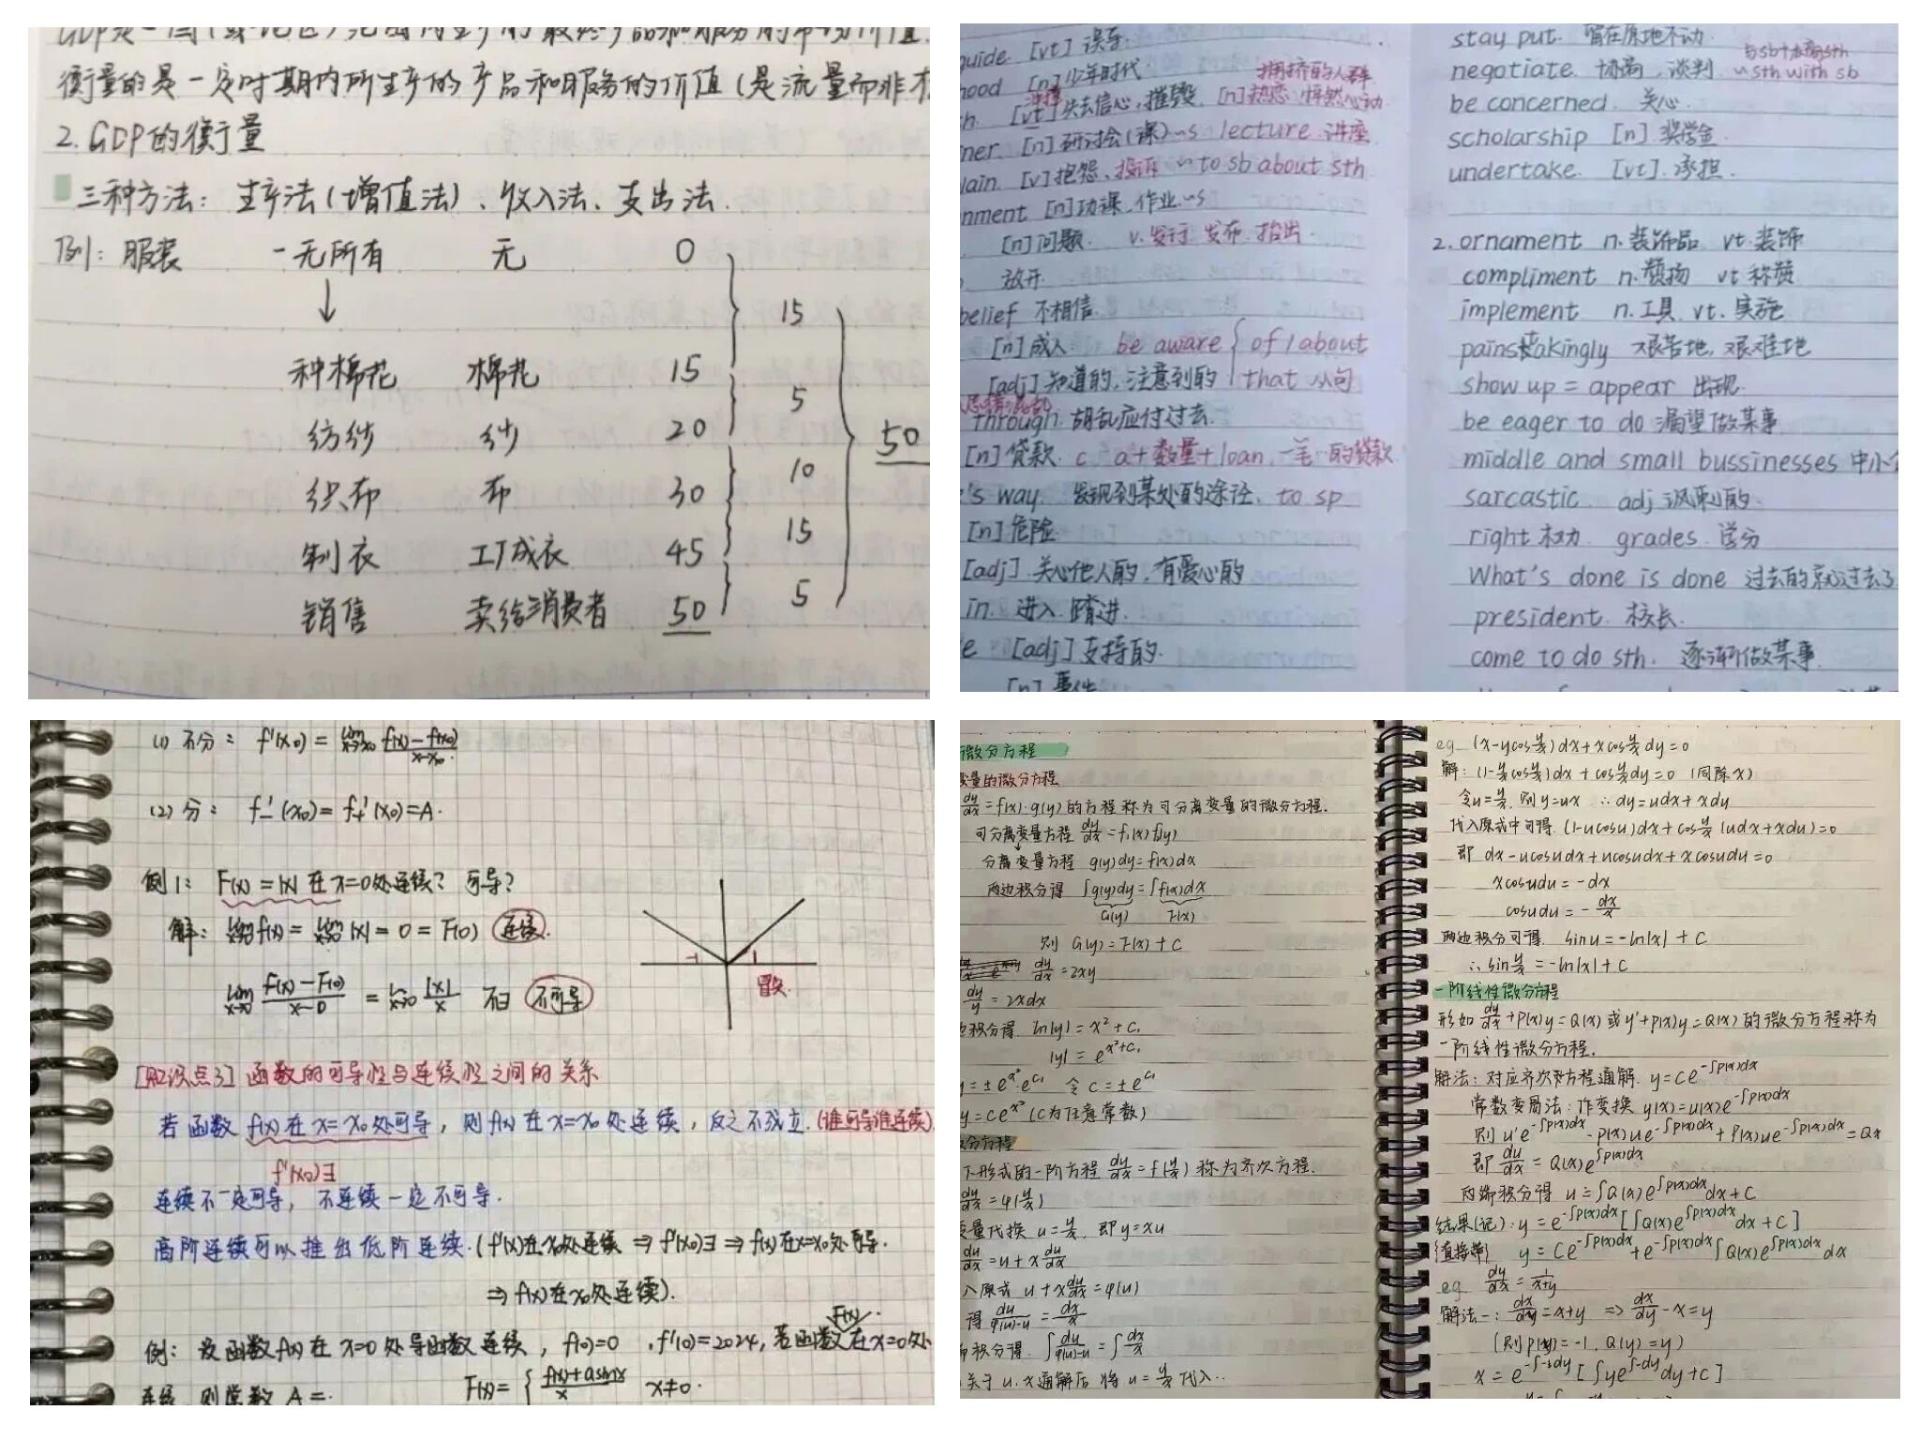 GDP是一国(或地区)范围内生产的最终产品和服务的市场价值.
衡量的是一定时期内所生产的产品和服务的价值(是流量而非
2. GDP的衡量
三种方法: 生产法(增值法)、收入法、支出法.
例: 服装 一无所有 无 0
↓ 15
种棉花 棉花 15
5
纺纱 纱 20
50
10
织布 布 30
15
制衣 工厂成衣 45
5
销售 卖给消费者 50
guide. [vt] 误导.
hood [n]少年时代 拥挤的人群
[vt]失去信心,摧毁. [n]热恋 怦然心动
ner. [n]研讨会(课)~s lecture 讲座
lain. [v]抱怨、投诉 ~to sb about sth
nment [n]功课,作业~s
[n]问题. v.发行 发布 指出
放开
belief 不相信
[n]成人 be aware { of / about
[adj]知道的,注意到的 that 从句
through 胡乱应付过去.
[n]贷款. c a+数量+loan 一笔…的贷款
's way. 发现到某处的途径. to sp
[n]危险
[adj].关心他人的,有爱心的
in. 进入
e [adj]支持的.
[n]事件
stay put. 留在原地不动
negotiate. 协商,谈判 ~sth with sb
be concerned. 关心.
scholarship [n].奖学金.
undertake. [vt].承担.
2. ornament n.装饰品 vt.装饰
compliment n.赞扬 vt 称赞
implement n.工具. vt.实施
painstakingly 艰苦地,艰难地
show up = appear 出现.
be eager to do 渴望做某事
middle and small bussinesses 中小
sarcastic adj 讽刺的.
right 权力. grades. 学分
What's done is done 过去的就过去了
president. 校长.
come to do sth. 逐渐做某事.
(1) 不分: f'(x₀) = lim x→x₀ f(x)-f(x₀)/x-x₀.
(2) 分: f₋'(x₀) = f₊'(x₀) = A.
例1: F(x)=|x| 在x=0处连续? 可导?
解: lim x→0 f(x) = lim x→0 |x| = 0 = F(0) 连续.
lim x→0 F(x)-F(0)/x-0 = lim x→0 |x|/x 不∃ 不可导
[知识点3] 函数的可导性与连续性之间的关系
若函数f(x)在x=x₀处可导, 则f(x)在x=x₀处连续, 反之不成立.(谁可导谁连续)
f'(x₀)∃
连续不一定可导, 不连续一定不可导.
高阶连续可以推出低阶连续.(f'(x)在x₀处连续 ⇒ f'(x₀)∃ ⇒ f(x)在x=x₀处可导.
⇒ f(x)在x₀处连续).
F(x)
例: 设函数f(x)在x=0处导函数连续, f(0)=0, f'(0)=2024, 若函数在x=0处
连续, 则常数A=. F(x)= { f(x)+asinx/x x≠0.
微分方程
变量的微分方程
dy/dx=f(x)·g(y)的方程称为可分离变量的微分方程.
可分离变量方程 dy/dx=f(x)f(y)
分离变量方程 g(y)dy=f(x)dx
两边积分得 ∫g(y)dy=∫f(x)dx
G(y) F(x)
则 G(y)=F(x)+C
dy/dx=2xy
dy/y=2xdx
边积分得 ln|y|=x²+C₁
|y|=e^(x²+C₁)
y=±e^(x²)·e^(C₁) 令C=±e^(C₁)
y=Ce^(x²) (C为任意常数)
分方程
下形式的一阶方程 dy/dx=f(y/x) 称为齐次方程.
dy/dx=φ(y/x)
变量代换 u=y/x, 即y=xu
dy/dx=u+x du/dx
入原式 u+x du/dx=φ(u)
得 du/φ(u)-u=dx/x
积分得 ∫du/φ(u)-u=∫dx/x
关于u.x通解后 将u=y/x代入..
eg (x-ycos y/x)dx+xcos y/x dy=0
解: (1-y/x cos y/x)dx+cos y/x dy=0 (同除x)
令u=y/x, 则y=ux ∴dy=udx+xdu
代入原式中可得. (1-ucosu)dx+cos y/x(udx+xdu)=0
即 dx-ucosudx+ucosudx+xcosudu=0
xcosudu=-dx
cosudu=-dx/x
两边积分可得. sinu=-ln|x|+C
∴sin y/x=-ln|x|+C
一阶线性微分方程
形如 dy/dx+P(x)y=Q(x)或y'+P(x)y=Q(x)的微分方程称为
一阶线性微分方程.
解法: 对应齐次方程通解. y=Ce^(-∫P(x)dx)
常数变易法: 作变换 y(x)=u(x)e^(-∫P(x)dx)
则 u'e^(-∫P(x)dx)-P(x)ue^(-∫P(x)dx)+P(x)ue^(-∫P(x)dx)=Qx
即 du/dx=Q(x)e^(∫P(x)dx)
两端积分得 u=∫Q(x)e^(∫P(x)dx)dx+C
结果(记): y=e^(-∫P(x)dx)[∫Q(x)e^(∫P(x)dx)dx+C]
(直接带) y=Ce^(-∫P(x)dx)+e^(-∫P(x)dx)∫Q(x)e^(∫P(x)dx)dx
eg dy/dx=1/x+y
解法一: dx/dy=x+y ⇒ dx/dy-x=y
(则P(y)=-1, Q(y)=y)
x=e^(-∫-1dy)[∫ye^(∫-dy)dy+C]